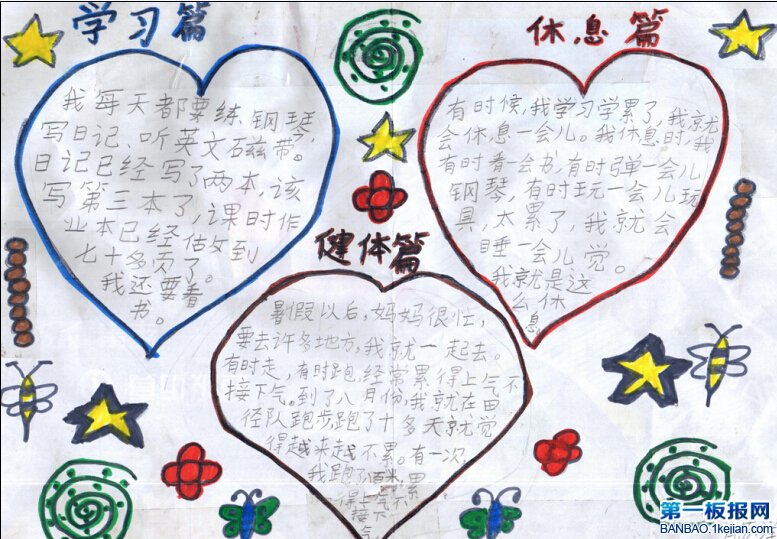 学习篇
我每天都要练钢琴,
写日记、听英文磁带。
日记已经写了两本,该
写第三本了,课时作
业本已经做到
七十多页了。
我还要看
书。
休息篇
有时候,我学习学累了,我就
会休息一会儿。我休息时,我
有时看一会书,有时弹一会儿
钢琴,有时玩一会儿玩
具,太累了,我就会
睡一会儿觉。
我就是这
么休
息
健体篇
暑假以后,妈妈很忙,
要去许多地方,我就一起去。
有时走,有时跑,经常累得上气不
接下气。到了八月份,我就在田
径队跑步,跑了十多天就觉
得越来越不累。有一次,
我跑了百米,累
得上气不
接下
气
第一板报网
BANBAO.1kejian.com